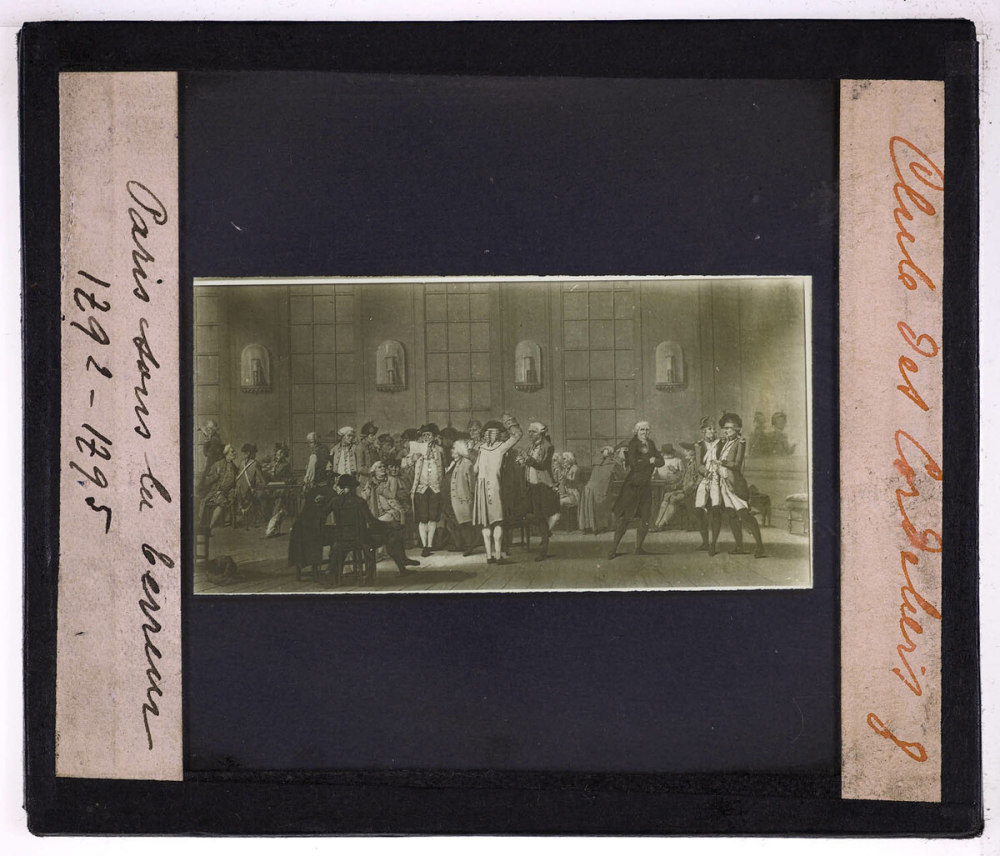 Paris sous la terreur
1792-1795
Club des Cordeliers 8